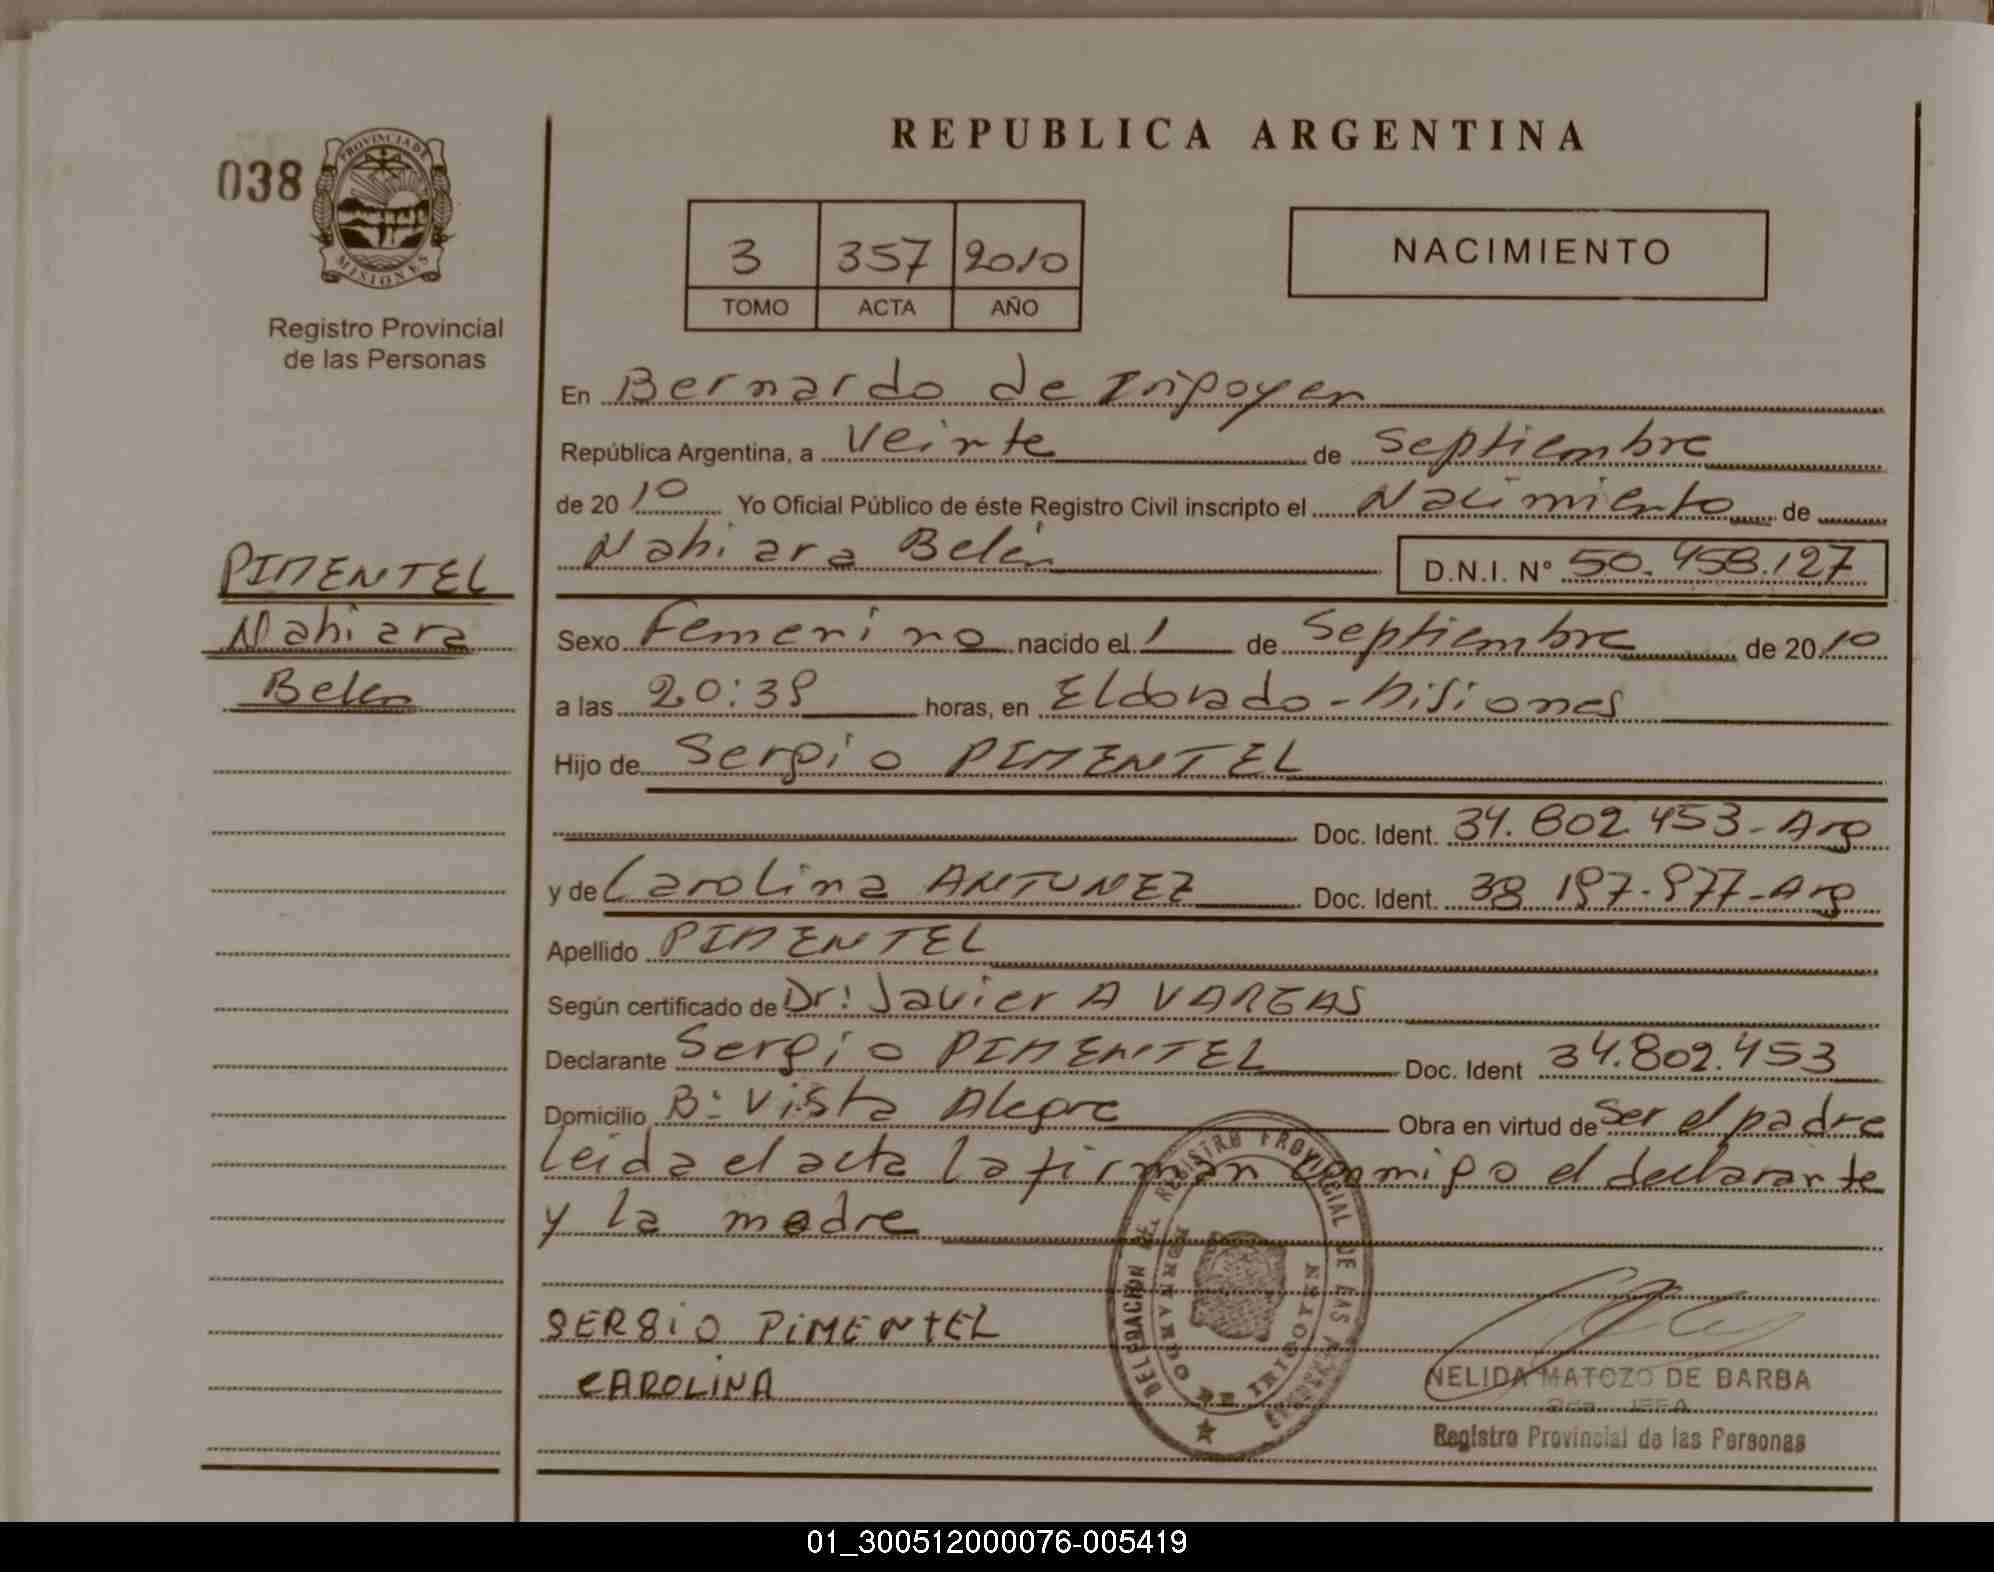 REPUBLICA ARGENTINA
038
PROVINCIA DE
MISIONES
Registro Provincial
de las Personas
3 357 2010
TOMO ACTA AÑO
NACIMIENTO
En Bernardo de Irigoyen
República Argentina, a Veinte de Septiembre
de 2010 Yo Oficial Público de éste Registro Civil inscripto el Nacimiento de
Nahiara Belén D.N.I. N° 50.458.127
PIMENTEL
Nahiara
Belen
Sexo Femenino nacido el 1 de Septiembre de 2010
a las 20:39 horas, en Eldorado - Misiones
Hijo de Sergio PIMENTEL
Doc. Ident. 34.802.453-Arg
y de Carolina ANTUNEZ Doc. Ident. 38.197.977-Arg
Apellido PIMENTEL
Según certificado de Dr: Javier A VARGAS
Declarante Sergio PIMENTEL Doc. Ident 34.802.453
Domicilio B: Vista Alegre Obra en virtud de Ser el padre
Leida el acta la firman conmigo el declarante
y la madre
DELEGACION DEL REGISTRO PROVINCIAL DE LAS PERSONAS
BERNARDO DE IRIGOYEN
SERGiO PiMENtEL
CAROLiNA
NELIDA MATOZO DE BARBA
2da JEFA
Registro Provincial de las Personas
01_300512000076-005419